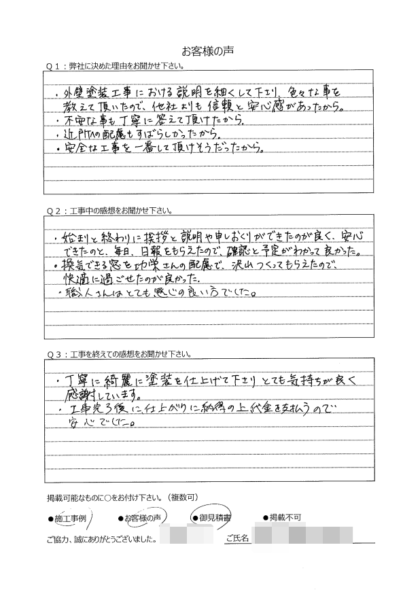 お客様の声
Q1：弊社に決めた理由をお聞かせ下さい。
・外壁塗装工事における説明を細くして下さり、色々な事を
教えて頂いたので、他社よりも信頼と安心感があったから。
・不安な事も丁寧に答えて頂けたから。
・近所への配慮もすばらしかったから。
・安全な工事を一番して頂けそうだったから。
Q2：工事中の感想をお聞かせ下さい。
・始まりと終わりに挨拶と説明や申しおくりができたのが良く、安心
できたのと、毎日、日報をもらえたので、確認と予定がわかって良かった。
・換気できる窓を功栄さんの配慮で、沢山つくってもらえたので、
快適に過ごせたのが良かった。
・職人さんはとても感じの良い方でした。
Q3：工事を終えての感想をお聞かせ下さい。
・丁寧に綺麗に塗装を仕上げて下さりとても気持ちが良く
感謝しています。
・工事完了後に仕上がりに納得の上代金を支払うので
安心でした。
掲載可能なものに○をお付け下さい。（複数可）
●施工事例 ●お客様の声 ●御見積書 ●掲載不可
ご協力、誠にありがとうございました。 ご氏名